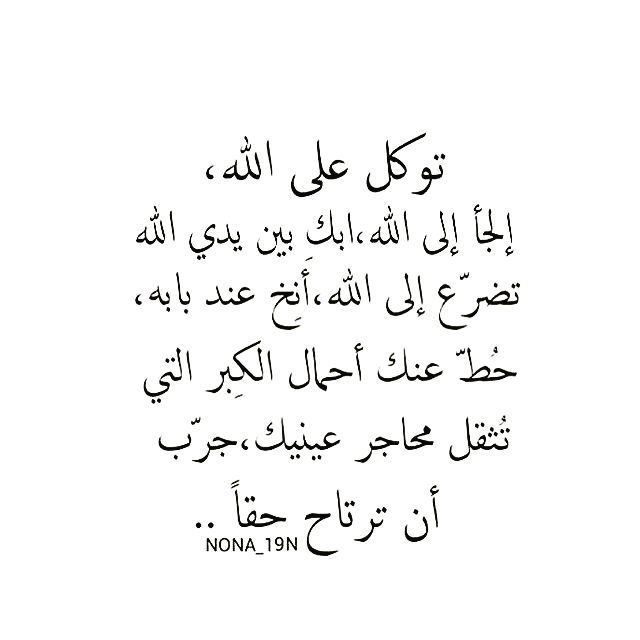 توكل على الله،
إلجأ إلى الله،ابكِ بين يدي الله
تضرّع إلى الله،أنِخ عند بابه،
حُطّ عنك أحمال الكِبر التي
تُثقل محاجر عينيك،جرّب
أن ترتاح حقاً ..
NONA_19N